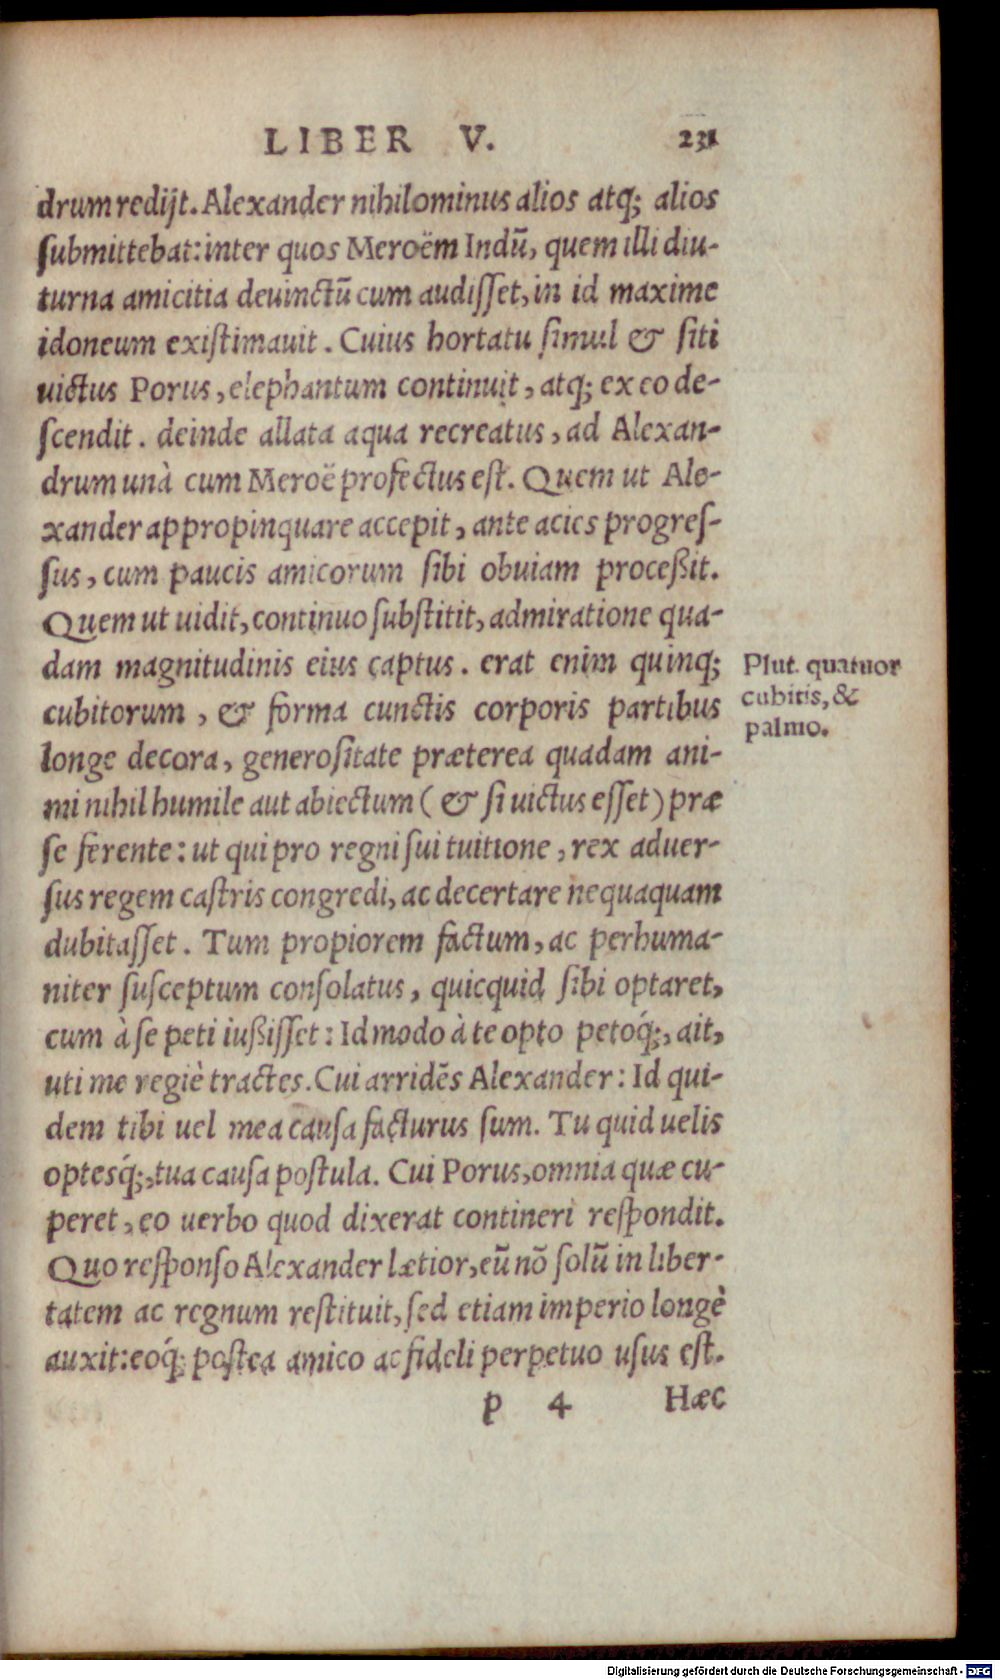 LIBER V. 231
drum redijt. Alexander nihilominus alios atq́; alios
ſubmittebat: inter quos Meroëm Indū, quem illi diu-
turna amicitia deuinctū cum audiſſet, in id maxime
idoneum exiſtimauit. Cuius hortatu ſimul & ſiti
uictus Porus, elephantum continuit, atq; ex eo de-
ſcendit. deinde allata aqua recreatus, ad Alexan-
drum unà cum Meroë profectus eſt. Quem ut Ale-
xander appropinquare accepit, ante acies progreſ-
ſus, cum paucis amicorum ſibi obuiam proceßit.
Quem ut uidit, continuo ſubſtitit, admiratione qua-
dam magnitudinis eius captus. erat enim quinq;
cubitorum, & forma cunctis corporis partibus
longe decora, generoſitate præterea quadam ani-
mi nihil humile aut abiectum (& ſi uictus eſſet) præ
ſe ferente: ut qui pro regni ſui tuitione, rex aduer-
ſus regem caſtris congredi, ac decertare nequaquam
dubitaſſet. Tum propiorem factum, ac perhuma-
niter ſuſceptum conſolatus, quicquid ſibi optaret,
cum à ſe peti iußiſſet: Id modo à te opto petoq́;, ait,
uti me regiè tractes. Cui arridēs Alexander: Id qui-
dem tibi uel mea cauſa facturus ſum. Tu quid uelis
optesq́;, tua cauſa poſtula. Cui Porus, omnia quæ cu-
peret, eo uerbo quod dixerat contineri reſpondit.
Quo reſponſo Alexander lætior, eū nō ſolū in liber-
tatem ac regnum reſtituit, ſed etiam imperio longè
auxit: eoq́; poſtea amico ac fideli perpetuo uſus eſt.
p 4 Hæc
Plut. quatuor
cubitis, &
palmo.
Digitalisierung gefördert durch die Deutsche Forschungsgemeinschaft - DFG